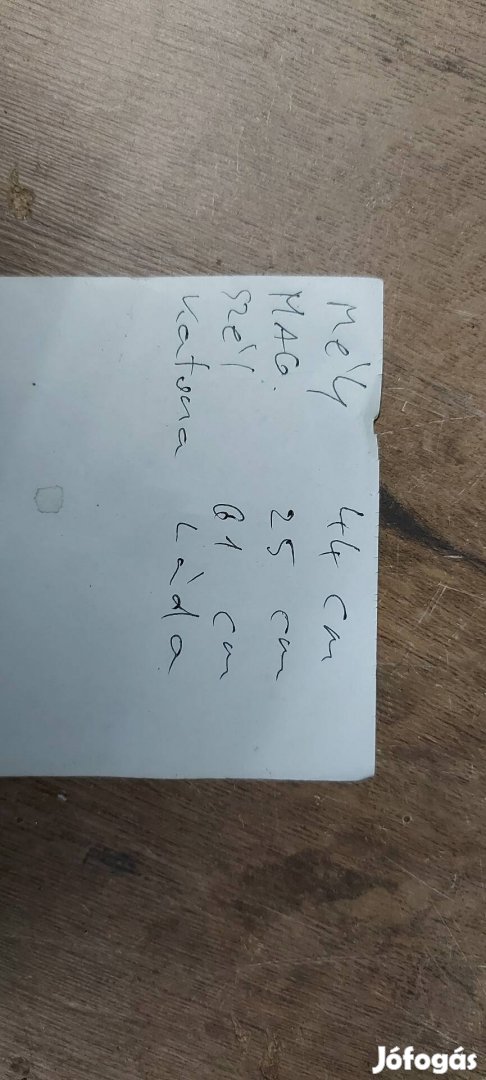 Mély 44 cm
MAG. 25 cm
szél 61 cm
Katona Láda
Jófogás